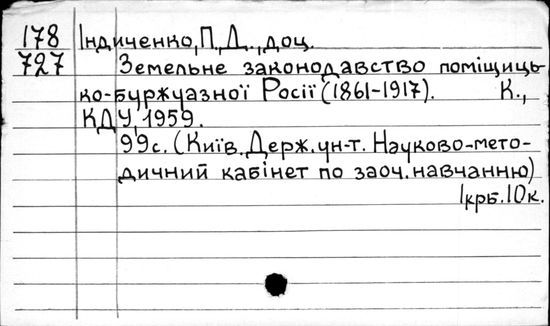 178 Індиченко, П.Д., доц.
727 Земельне законодавство поміщиць-
ко-буржуазної Росії (1861-1917). К.,
КДУ, 1959.
99с. (Київ. Держ. ун-т. Науково-мето-
дичний кабінет по заоч. навчанню)
1крб. 10к.